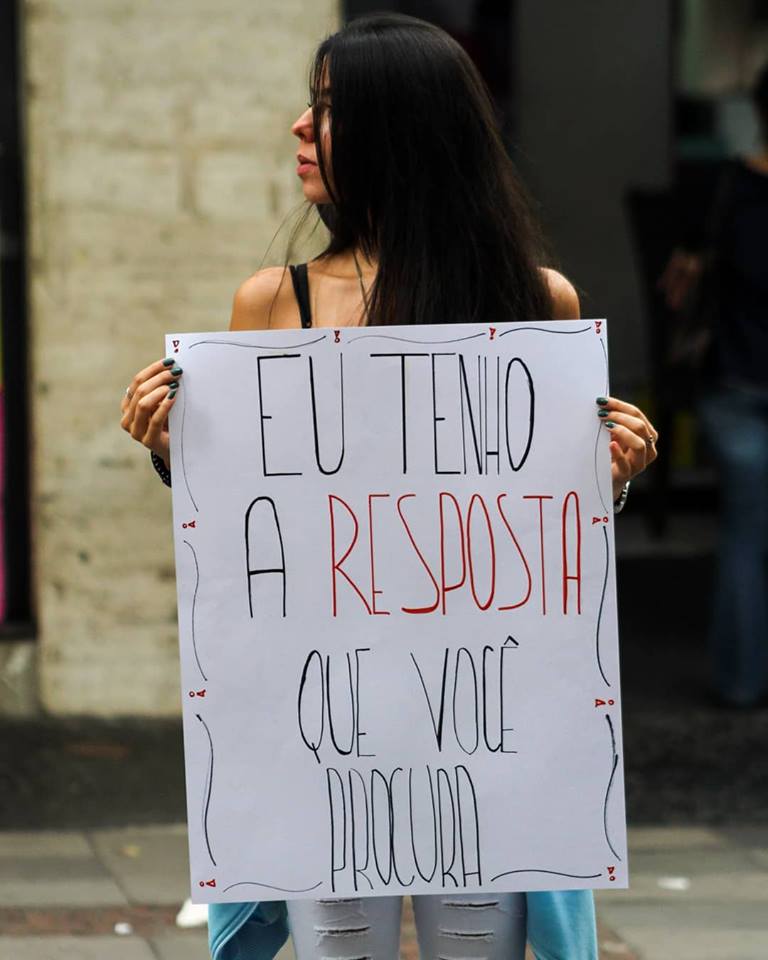 EU TENHO
A RESPOSTA
QUE VOCÊ
PROCURA